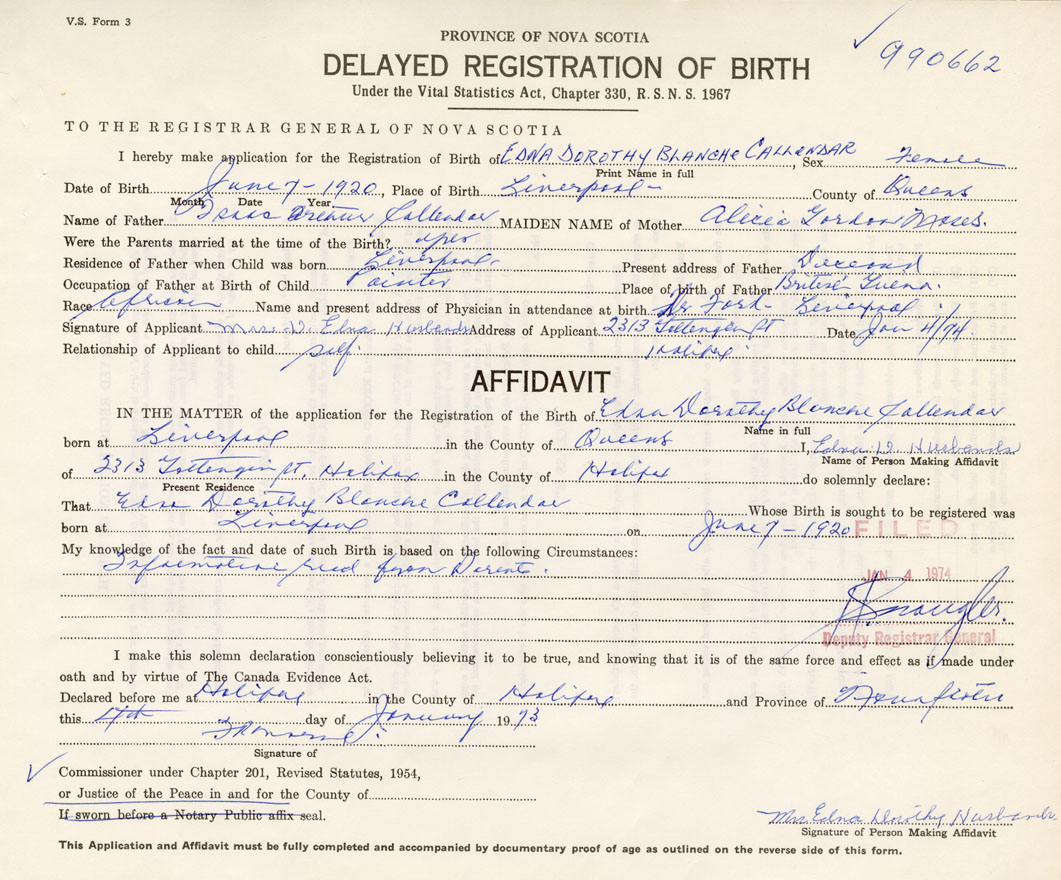 V.S. Form 3
990662
PROVINCE OF NOVA SCOTIA
DELAYED REGISTRATION OF BIRTH
Under the Vital Statistics Act, Chapter 330, R.S.N.S. 1967
TO THE REGISTRAR GENERAL OF NOVA SCOTIA
I hereby make application for the Registration of Birth of EDNA DOROTHY BLANCHE CALLENDAR, Sex Female
Print Name in full
Date of Birth June 7 - 1920, Place of Birth Liverpool - County of Queens
Month Date Year
Name of Father Isaac Arthur Callendar MAIDEN NAME of Mother Alicia Gordon Moses.
Were the Parents married at the time of the Birth? yes
Residence of Father when Child was born Liverpool - Present address of Father Deceased
Occupation of Father at Birth of Child Painter Place of birth of Father British Guena.
Race African Name and present address of Physician in attendance at birth Dr Ford - Liverpool
Signature of Applicant Mrs. D. Edna Husbands Address of Applicant 2313 Gottengin St Date Jan 4/74.
Relationship of Applicant to child self. Halifax
AFFIDAVIT
IN THE MATTER of the application for the Registration of the Birth of Edna Dorothy Blanche Callendar
Name in full
born at Liverpool in the County of Queens I, Edna D. Husbands
Name of Person Making Affidavit
of 2313 Gottengin St, Halifax in the County of Halifax do solemnly declare:
Present Residence
That Edna Dorothy Blanche Callendar Whose Birth is sought to be registered was
born at Liverpool on June 7 - 1920
FILED
My knowledge of the fact and date of such Birth is based on the following Circumstances:
Information recd from Parents.
JAN 4 1974
Deputy Registrar General
I make this solemn declaration conscientiously believing it to be true, and knowing that it is of the same force and effect as if made under
oath and by virtue of The Canada Evidence Act.
Declared before me at Halifax in the County of Halifax and Province of Nova Scotia
this 4th day of January 1973
Signature of
Commissioner under Chapter 201, Revised Statutes, 1954,
or Justice of the Peace in and for the County of
If sworn before a Notary Public affix seal.
Mrs Edna Dorothy Husbands
Signature of Person Making Affidavit
This Application and Affidavit must be fully completed and accompanied by documentary proof of age as outlined on the reverse side of this form.